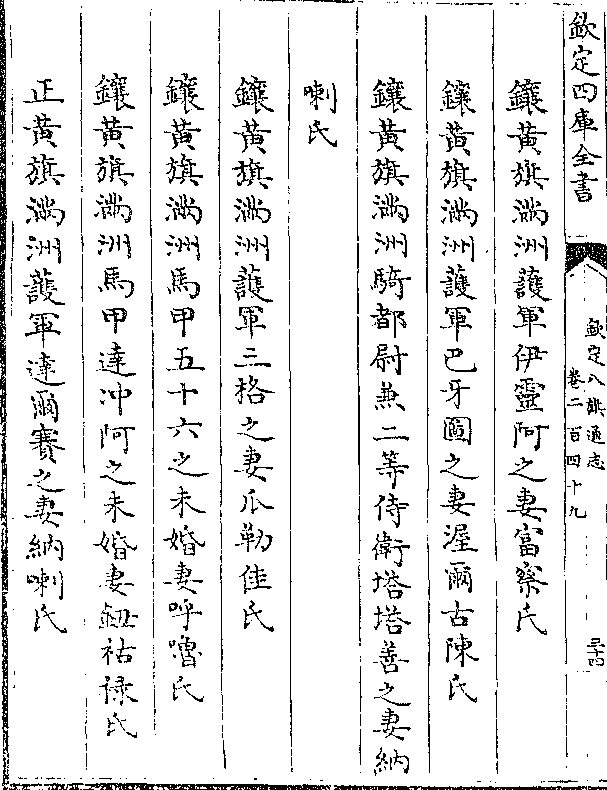 欽定四庫全書
欽定八旗通志
卷二百四十九
三十四
鑲黃旗滿洲護軍伊靈阿之妻富察氏
鑲黃旗滿洲護軍巴牙圖之妻渥爾古陳氏
鑲黃旗滿洲騎都尉兼二等侍衛塔塔善之妻納
喇氏
鑲黃旗滿洲護軍三格之妻瓜勒佳氏
鑲黃旗滿洲馬甲五十六之未婚妻呼嚕氏
鑲黃旗滿洲馬甲達冲阿之未婚妻鈕祜祿氏
正黃旗滿洲護軍達爾賽之妻納喇氏